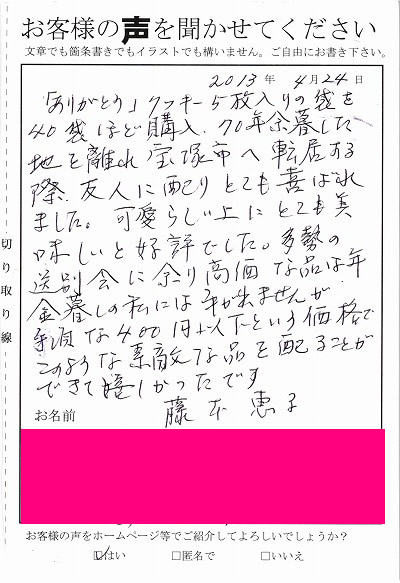 お客様の声を聞かせてください
文章でも箇条書きでもイラストでも構いません。ご自由にお書き下さい。
2013年 4月24日
「ありがとう」クッキー5枚入りの袋を
40袋ほど購入、70年余暮した
地を離れ宝塚市へ転居する
際、友人に配りとても喜ばれ
ました。可愛らしい上にとても美
味しいと好評でした。多勢の
送別会に余り高価な品は年
金暮しの私には手が出ませんが
手頃な400円以下という価格で
このような素敵な品を配ることが
できて嬉しかったです
お名前 藤本恵子
切り取り線
お客様の声をホームページ等でご紹介してよろしいでしょうか?
☑はい □匿名で □いいえ